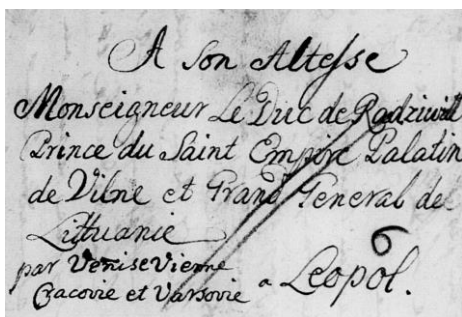 A Son Altesse
Monseigneur Le Duc de Radziwill
Prince du Saint Empire Palatin
de Vilne et Grand General de
Litthuanie
6
par Venise Vienne
Cracovie et Varsovie a Leopol.